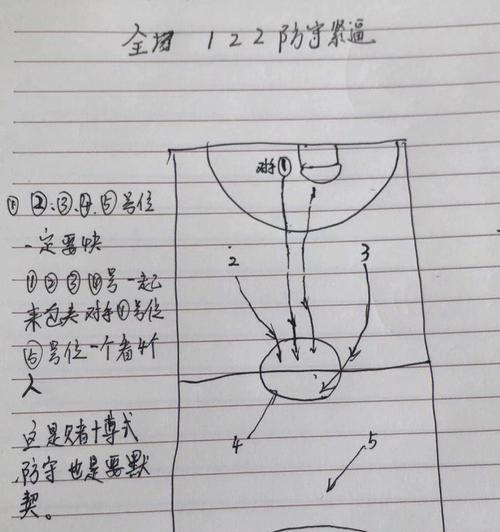 全场 122防守紧逼
对手①
① ②、③、④、⑤号位
一定要快
①②③④号一起
来包夹对手①号位
⑤号位一个看4个
人
这是赌博式
防守也是要默
契。
2
3
4
5